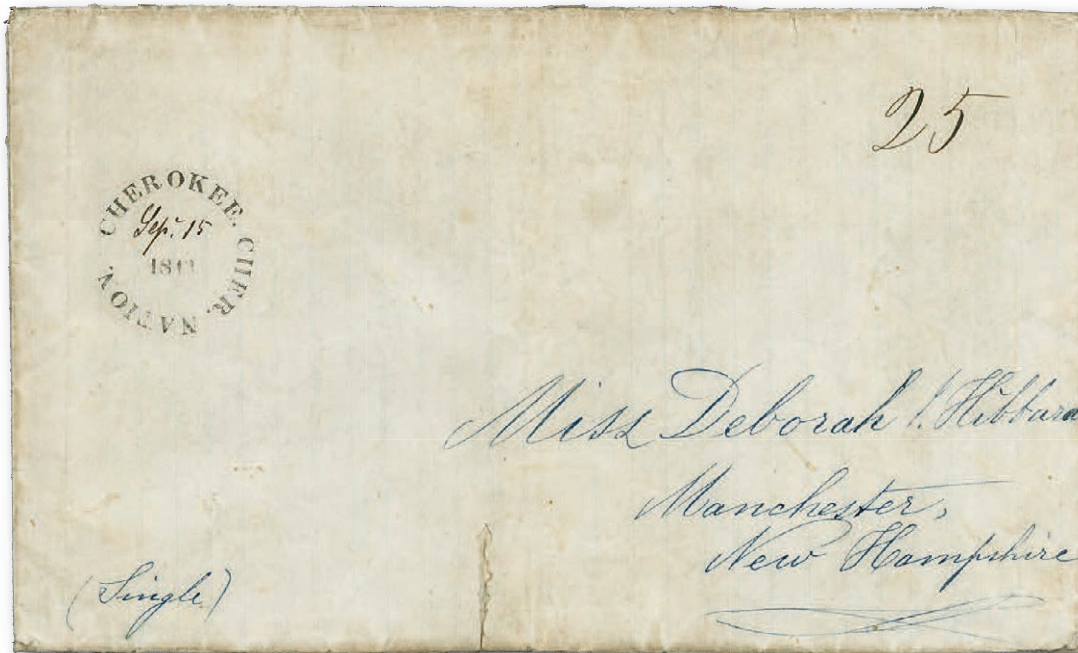 25
CHEROKEE. CHER. NATION.
Sep. 15
Miss Deborah Hibbard
Manchester,
New Hampshire
(Single)